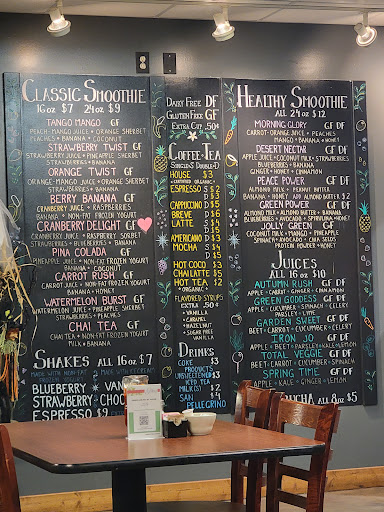 Classic Smoothie
16 oz $7 24 oz $9
TANGO MANGO GF
PEACH-MANGO JUICE • ORANGE SHERBET
PEACHES • BANANA • COCONUT
STRAWBERRY TWIST GF
STRAWBERRY JUICE • PINEAPPLE SHERBET
STRAWBERRIES • BANANA
ORANGE TWIST GF
ORANGE-MANGO JUICE • ORANGE SHERBET
STRAWBERRIES • BANANA
BERRY BANANA GF
CRANBERRY JUICE • RASPBERRIES
BANANA • NON-FAT FROZEN YOGURT
CRANBERRY DELIGHT GF
CRANBERRY JUICE • RASPBERRY SORBET
STRAWBERRIES • BLUEBERRIES • BANANA
PINA COLADA GF
PINEAPPLE JUICE • NON-FAT FROZEN YOGURT
BANANA • COCONUT
CARROT RUSH GF
CARROT JUICE • NON-FAT FROZEN YOGURT
BANANA • HONEY
WATERMELON BURST GF
WATERMELON JUICE • PINEAPPLE SHERBET
STRAWBERRIES • PEACHES
CHAI TEA GF
CHAI TEA • NON-FAT FROZEN YOGURT
BANANA
SHAKES ALL 16 oz $7
MADE WITH NON-FAT
FROZEN YOGURT
BLUEBERRY
STRAWBERRY
ESPRESSO $9
DAIRY FREE DF
GLUTEN FREE GF
EXTRA CUP .50¢
COFFEE • TEA
SINGLE S DOUBLE D
HOUSE $3
CERTIFIED ORGANIC
ESPRESSO S $2
D $3
CAPPUCCINO S
D
BREVE S
LATTE S
AMERICANO D $3
MOCHA S $4
D $5
HOT COCO $3
CHAI LATTE $5
HOT TEA $2
ORGANIC
FLAVORED SYRUPS
EXTRA .50¢
• VANILLA
• CARAMEL
• HAZELNUT
• SUGAR FREE
VANILLA
DRINKS
COKE $3
PRODUCTS
UNSWEETENED $3
ICED TEA
MILK $2
SAN $4
PELLEGRINO
Healthy Smoothie
ALL 24 oz $12
MORNING GLORY GF DF
CARROT-ORANGE JUICE • PEACHES
MANGO • BANANA
DESERT NECTAR GF DF
APPLE JUICE • COCONUT MILK • STRAWBERRIES
BLUEBERRIES • BANANA
GINGER • HONEY • CINNAMON
PEACE POWER GF DF
ALMOND MILK • PEANUT BUTTER
BANANA • HONEY
GREEN POWER GF DF
ALMOND MILK • ALMOND BUTTER • BANANA
BLUEBERRIES • AVOCADO • SPIRULINA • HONEY
JOLLY GREEN GF DF
COCONUT MILK • MANGO • PINEAPPLE
SPINACH • AVOCADO • CHIA SEEDS
PROTEIN POWDER • HONEY
JUICES
ALL 16 oz $10
AUTUMN RUSH GF DF
APPLE • CARROT • GINGER • CINNAMON
GREEN GODDESS GF DF
APPLE • CUCUMBER • SPINACH • CELERY
PARSLEY • LIME
GARDEN SWEET GF DF
BEET • CARROT • CUCUMBER • CELERY
IRON JO GF DF
APPLE • BEET • PARSLEY • KALE • LEMON
TOTAL VEGGIE GF DF
BEET • CARROT • CUCUMBER • CELERY
SPRING TIME GF DF
APPLE • KALE • GINGER • LEMON
ALL 8oz $5